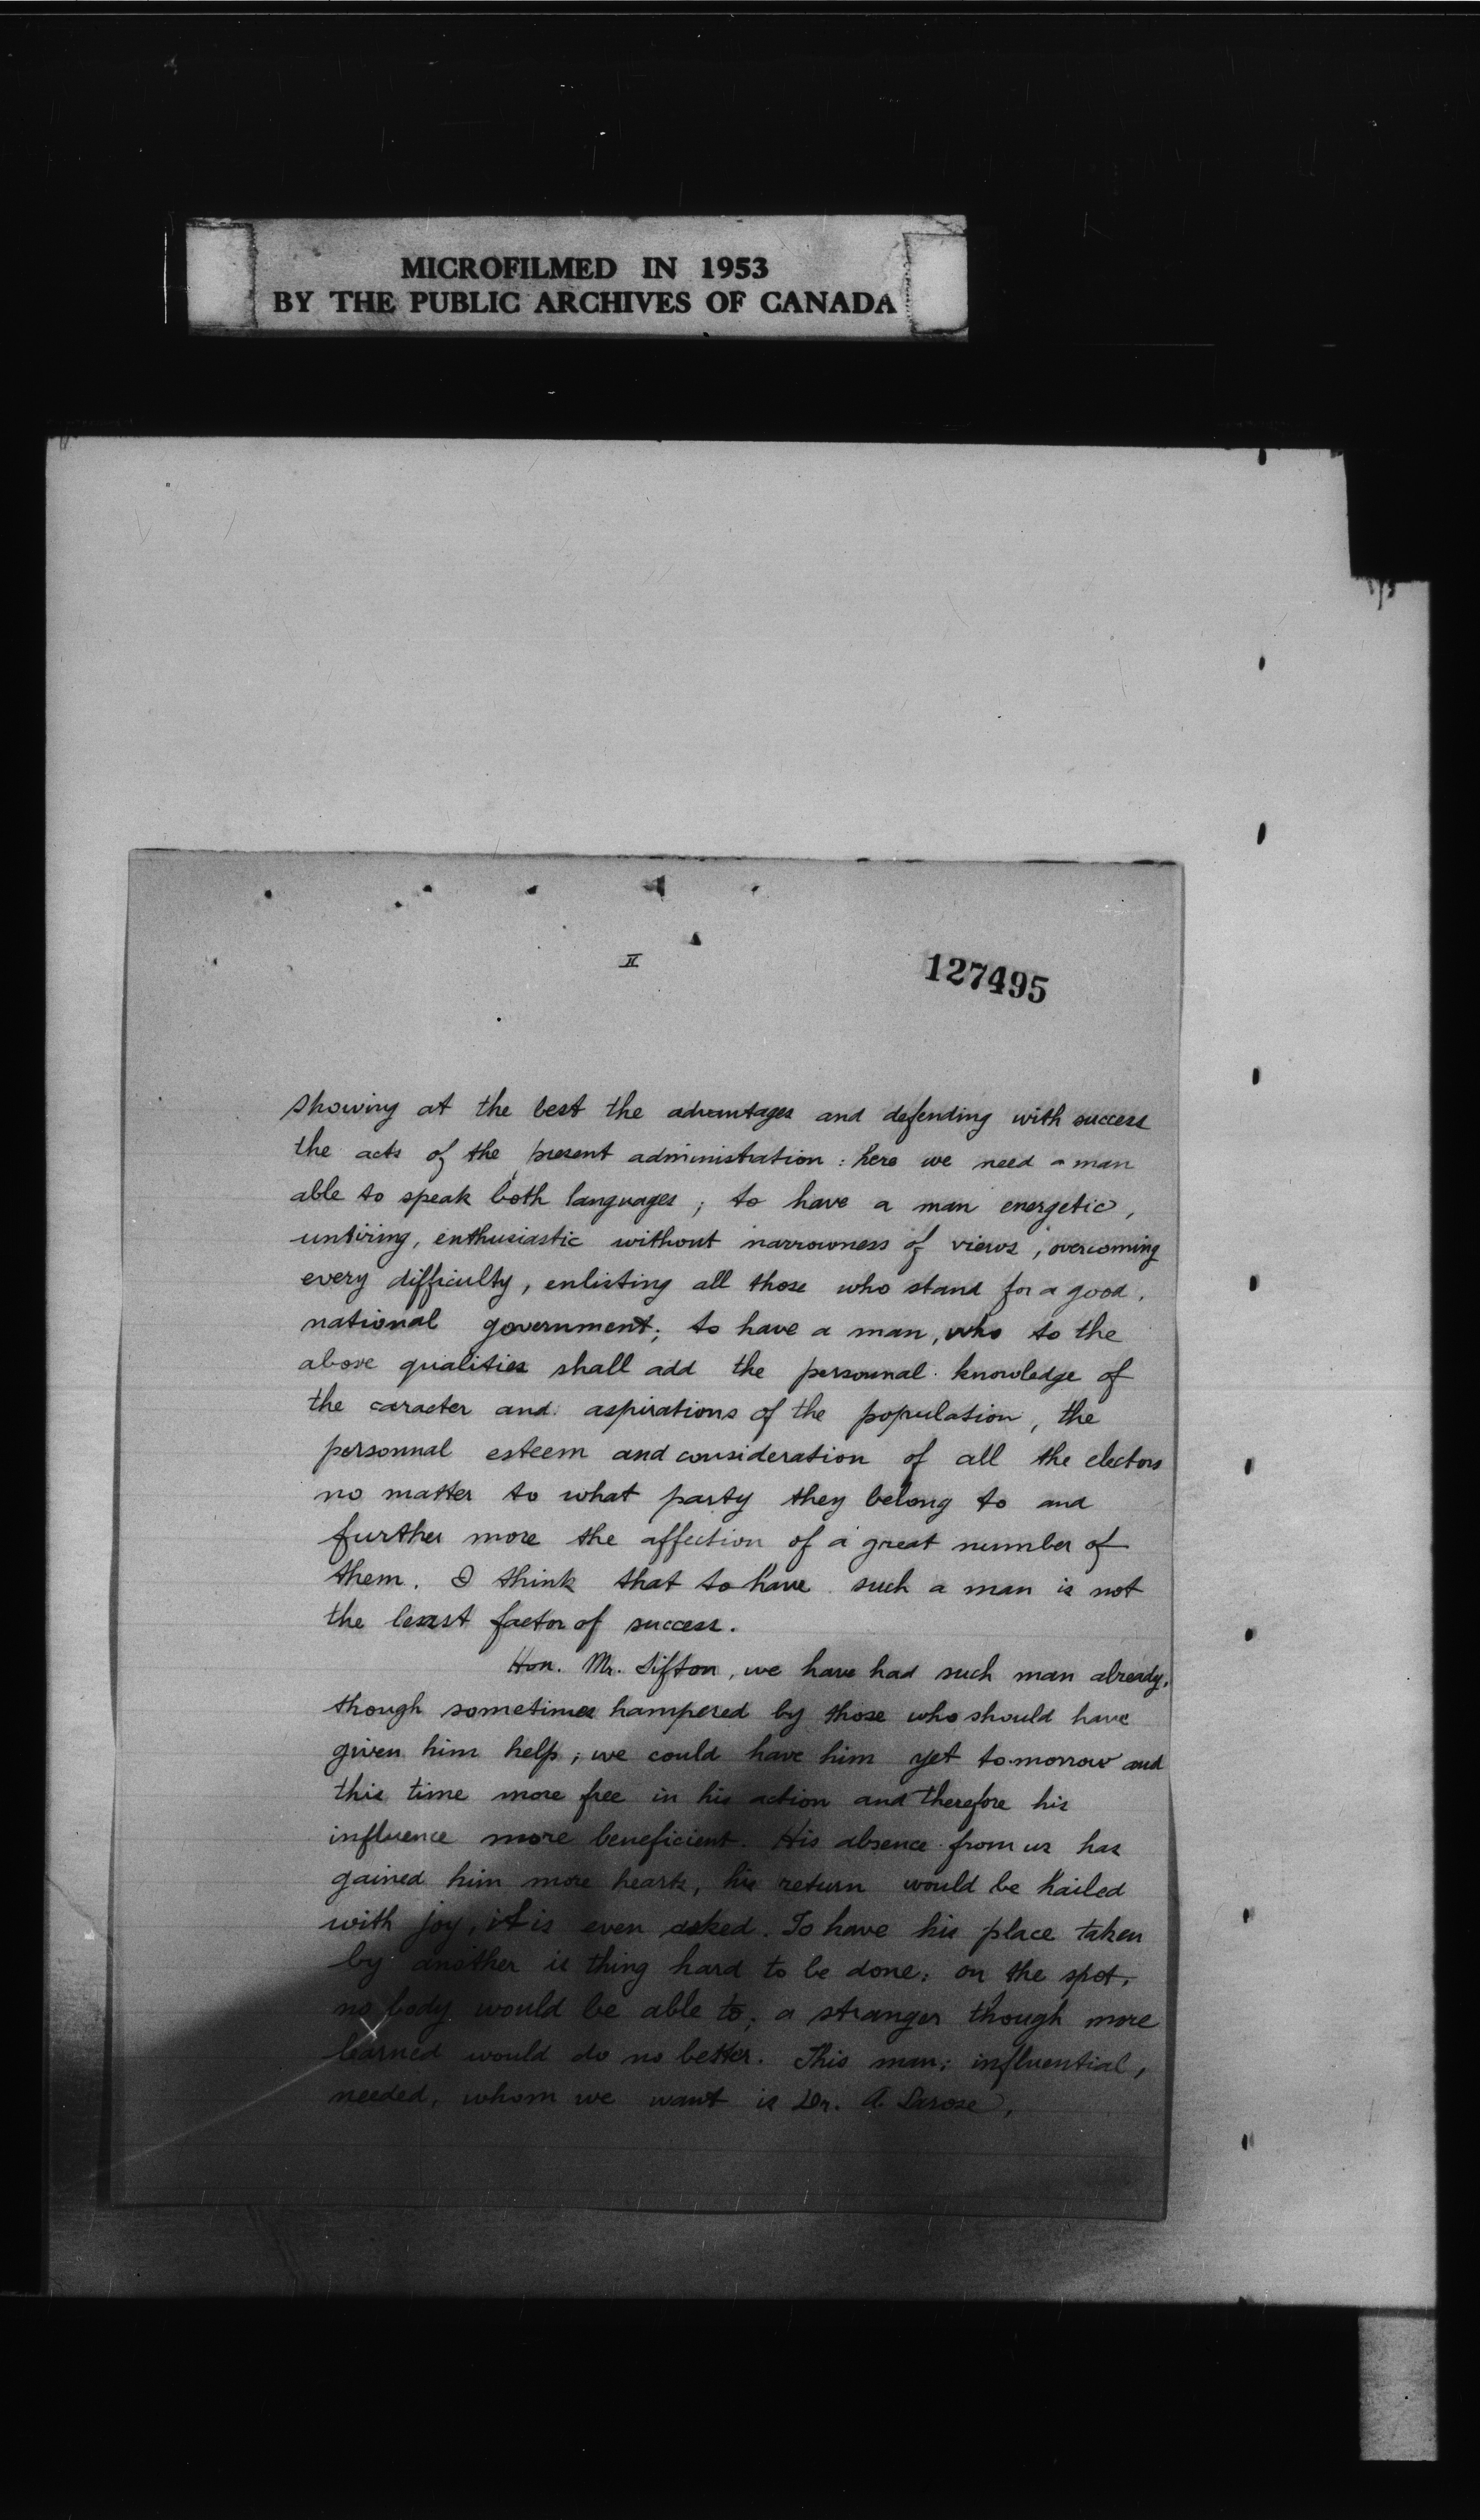 MICROFILMED IN 1953
BY THE PUBLIC ARCHIVES OF CANADA
II
127495
showing at the best the advantages and defending with success
the acts of the present administration : here we need a man
able to speak both languages ; to have a man energetic,
untiring, enthusiastic without narrowness of views, overcoming
every difficulty, enlisting all those who stand for a good,
national government; to have a man, who to the
above qualities shall add the personnal knowledge of
the caracter and aspirations of the population, the
personnal esteem and consideration of all the electors
no matter to what party they belong to and
further more the affection of a great number of
them. I think that to have such a man is not
the least factor of success.
Hon. Mr. Sifton, we have had such man already,
though sometimes hampered by those who should have
given him help; we could have him yet to-morrow and
this time more free in his action and therefore his
influence more beneficient. His absence from us has
gained him more hearts, his return would be hailed
with joy, it is even asked. To have his place taken
by another is thing hard to be done: on the spot,
no body would be able to; a stranger though more
learned would do no better. This man: influential,
needed, whom we want is Dr. A. Larose,